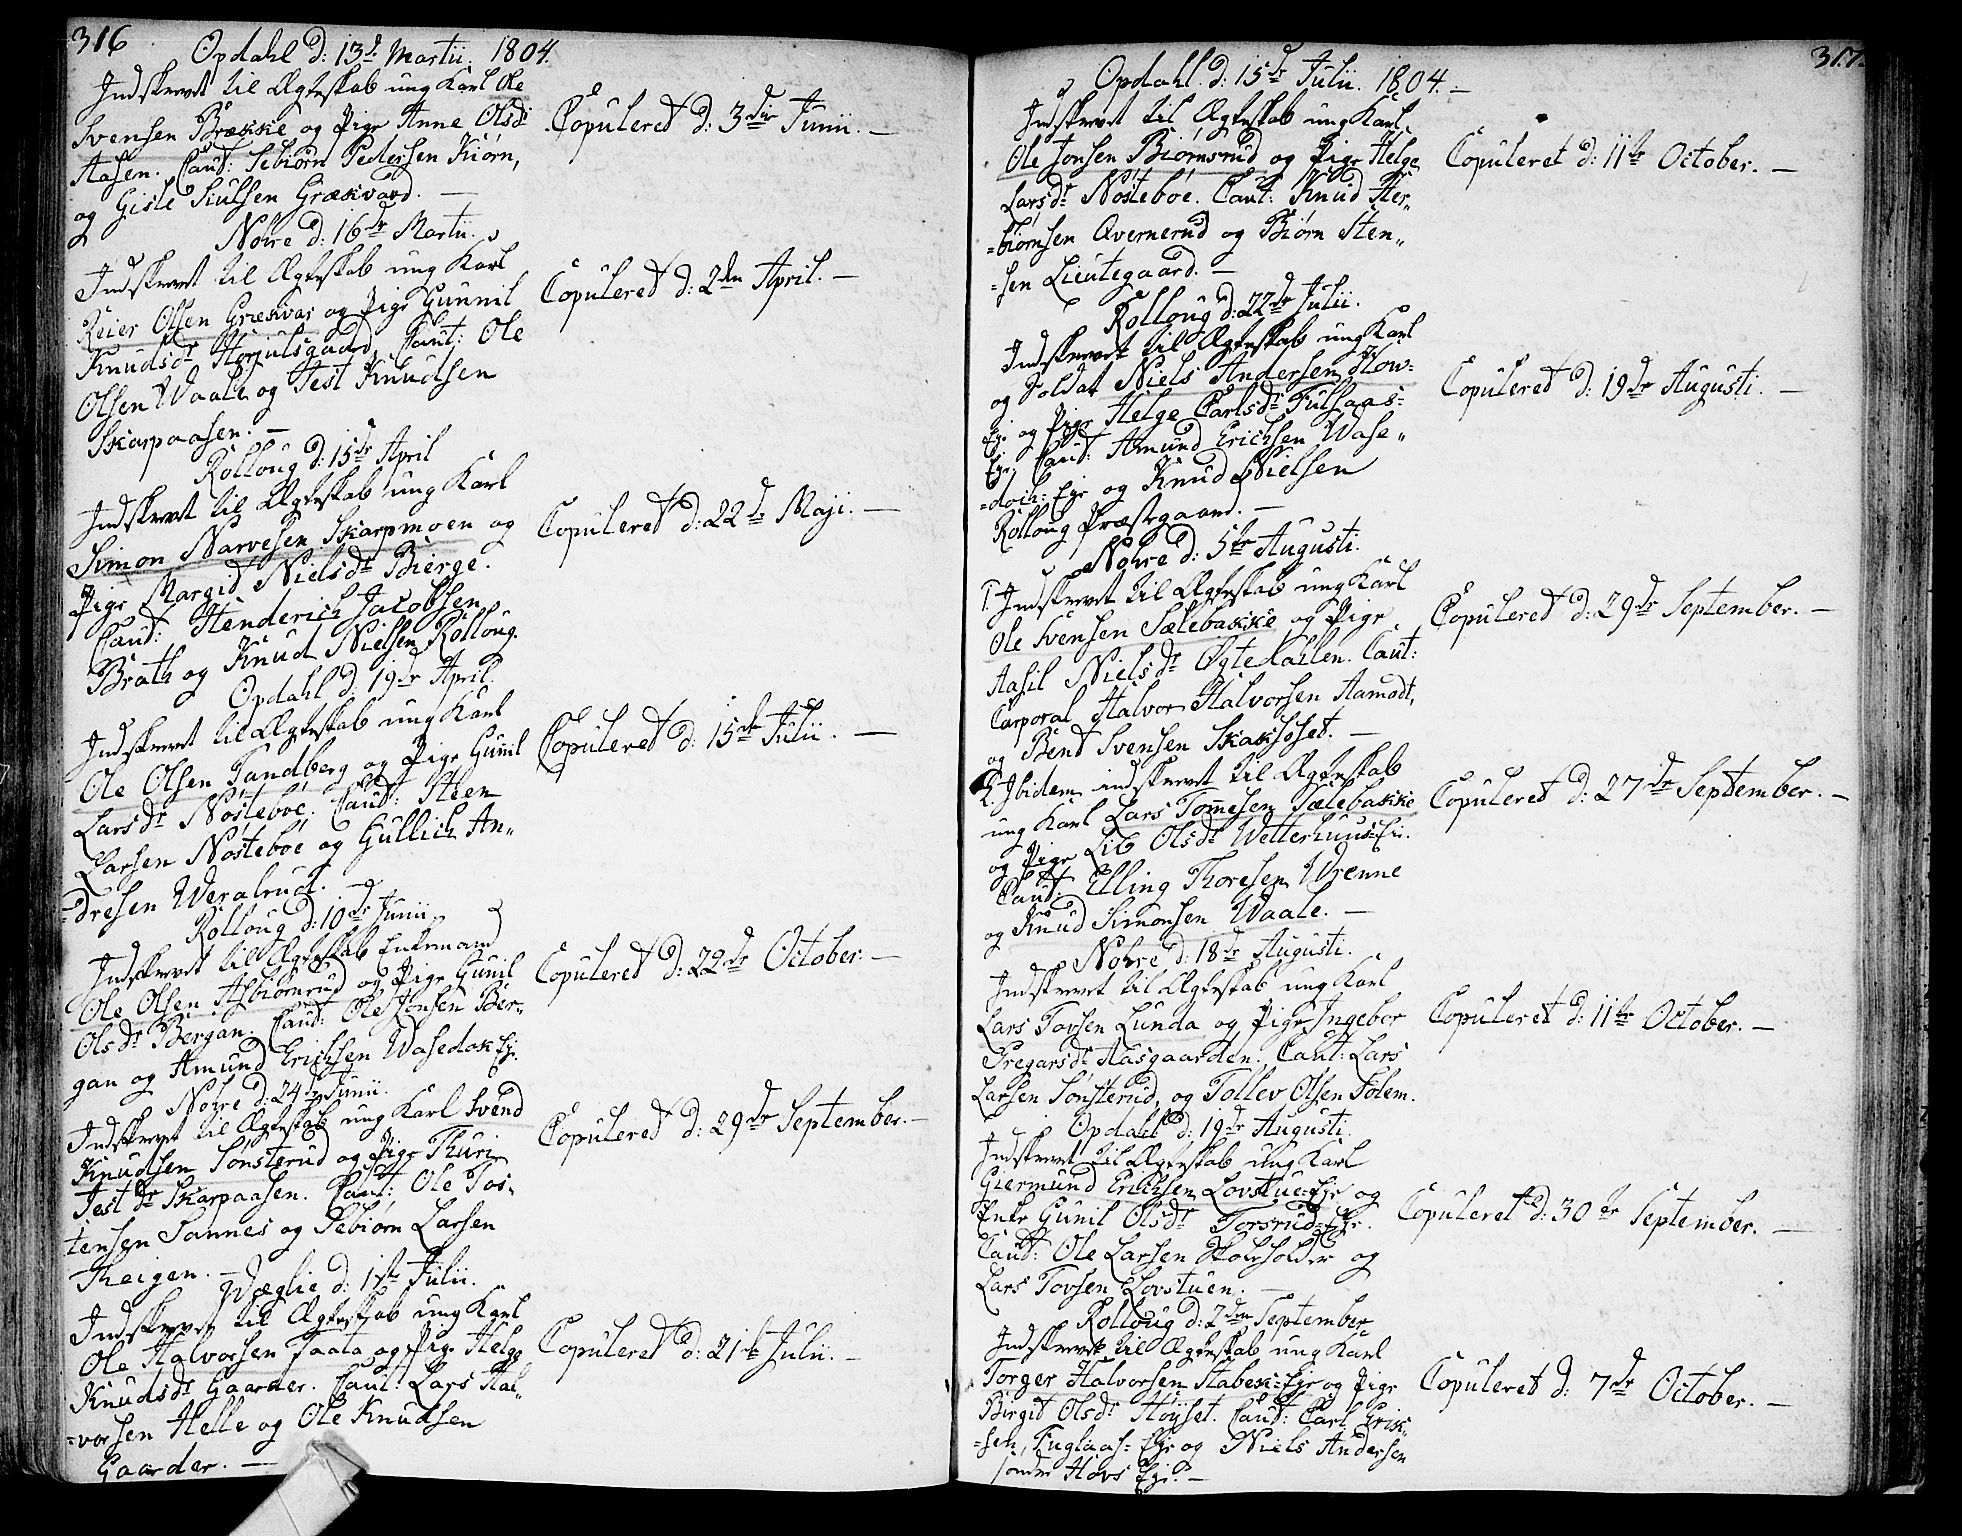 316
Opdahl d: 13de Martii. 1804.
Indskrevet til Ægteskab ung Karl Ole
Svensen Brække og Pige Anne Olsdr
Aasen. Caut: Sebiørn Pedersen Kiørn,
og Gisle Siulsen Grækvard. —
Copuleret d: 3die Junii. —
Nohre d: 16de Martii.
Indskrevet til Ægteskab ung Karl
Reier Olsen Grækvar og Pige Gunnil
Knudsdr Herjulsgaard, Caut: Ole
Olsen Waale og Test Knudsen
Skarpaasen. —
Copuleret d: 2den April. —
Rolloug d: 15de April
Indskrevet til Ægteskab ung Karl
Simon Narvesen Skarpmoen og
Pige Margid Nielsdr Bierge.
Caut: Henderich Jacobsen
Brath og Knud Nielsen Rolloug.
Copuleret d: 22de Maji. —
Opdahl d. 19de April.
Indskrevet til Ægteskab ung Karl
Ole Olsen Tandberg og Pige Gunil
Larsdr Nøsteboe. Caut: Steen
Larsen Nøsteboe og Gullich An„
=dresen Weralrud. —
Copuleret d: 15de Julii. —
Rolloug d: 10de Junii
Indskrevet til Ægteskab Enkemand
Ole Olsen Asbiørnrud og Pige Gunil
Olsdr Bergan. Caut: Ole Jonsen Ber„
gan og Amund Erichsen Wasedok Eje.
Copuleret d: 22de October. —
Nohre d: 24de Junii.
Indskrevet til Ægteskab ung Karl Svend
Knudsen Sønsterud og Pige Thuri
Testdr Skarpaasen. Caut: Ole Tos„
tensen Sannes og Sebiørn Larsen
Theigen. —
Copuleret d: 29de September. —
Wæglie d: 1ste Julii.
Indskrevet til Ægteskab ung Karl
Ole Halvorsen Faata og Pige Helge
Knudsdr Gaarder. Caut: Lars Hal„
=vorsen Helle og Ole Knudsen
Gaarder. —
Copuleret d: 21de Julii. —
317.
Opdahl. d: 15de Julii. 1804. —
Indskrevet til Ægteskab ung Karl
Ole Jonsen Biørnsrud og Pige Helge
Larsdr Nøsteboe. Caut: Knud Her„
=biørnsen Qvernerud og Biørn Sten„
=sen Lieutegaard. —
Copuleret d: 11te October. —
Rolloug d: 22de Julii.
Indskrevet til Ægteskab ung Karl
og Soldat Niels Andersen How=
Eje og Pige Helge Carlsdr Fulsaas=
Eje, Caut: Amund Erichsen Wase„
=doch= Eje og Knud Nielsen
Rolloug Præstegaard. —
Copuleret d: 19de Augusti. —
Nohre d: 5te Augusti.
1. Indskrevet til Ægteskab ung Karl
Ole Svensen Sælebakke og Pige
Aasil Nielsdr Øgtedahlen. Caut:
Corporal Halvor Halvorsen Aamodt,
og Bent Svensen Skaksøset. —
Copuleret d: 29de September. —
2. Ibidem indskrevet til Ægteskab
ung Karl Lars Tommesen Sælebakke
og Pige Lib Olsdr Wetterhuus Eje.
Caut: Elling Thoresen Wrenne
og Knud Simonsen Waale. —
Copuleret d: 27de September. —
Nohre d: 18de Augusti.
Indskrevet til Ægteskab ung Karl
Lars Tovsen Lunda og Pige Ingebor
Gregarsdr Aasgaarden. Caut: Lars
Larsen Sønsterud, og Tollev Olsen Solem.
Copuleret d: 11te October. —
Opdahl d: 19de Augusti.
Indskrevet til Ægteskab ung Karl
Giermund Erichsen Lovstue=Eje og
Enke Gunil Olsdr Torsrud=Eje.
Caut: Ole Larsen Skoleholder og
Lars Tovsen Lovstuen. —
Copuleret d: 30te September. —
Rolloug d: 2den September
Indskrevet til Ægteskab ung Karl
Torger Halvorsen Stabek=Eje og Pige
Birgit Olsdr Høyset. Caut: Carl Erik„
=sen, Fuglaas= Eje og Niels Andersen
søndre Hovs Eje. —
Copuleret d: 7de October. —